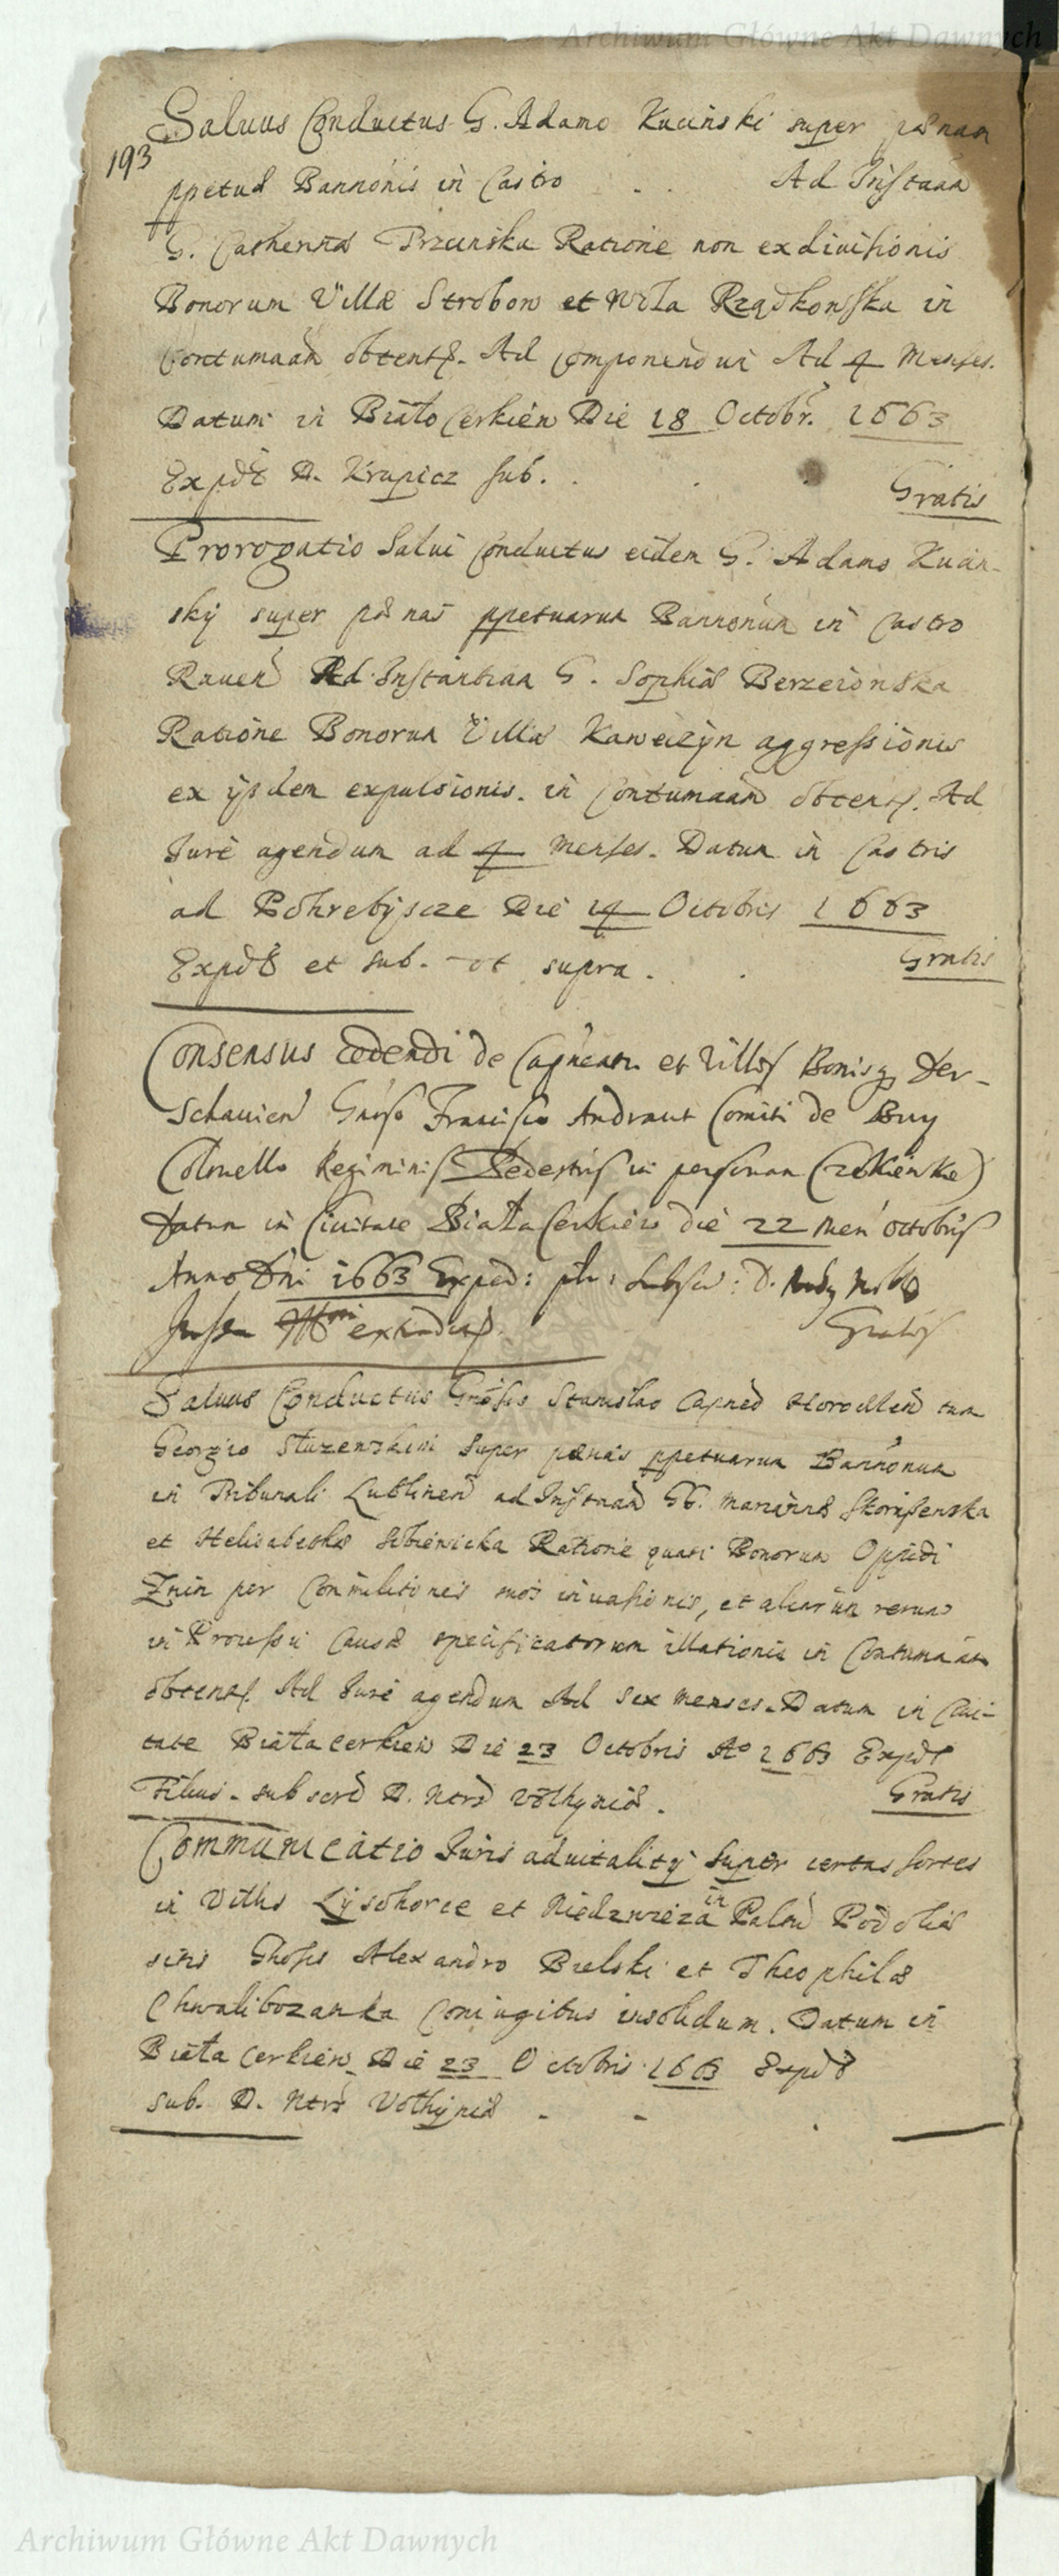 Archiwum Główne Akt Dawnych
Salvus Conductus G. Adamo Kucinski super pænam
193
ppetuæ Bannonis in Castro . . Ad Instaãã
G. Catherinæ Przeunska Ratione non exdivisionis
Bonorum Villæ Strobow et Wola Rządkowska in
Contumaãã obtent. Ad componendum Ad 4 Menses.
Datum in Biało Cerkiew Die 18 Octobr. 1663
Expdt D. Krupicz sub. . . . Gratis
Prorogatio Salui Conductus eidem G. Adamo Kucin-
skÿ super pænas ppetuarum Bannonum in Castro
Raven Ad Instantiam G. Sophiæ Berzeionska
Ratione Bonorum Villæ Kaweczÿn aggressionis
ex ÿsdem expulsionis. in Contumaãã obtent. Ad
Jure agendum ad 4 Menses. Datum in Castris
ad Pohrebÿscze Die 14 Octobris 1663
Expdt et sub. ut supra . . Gratis
Consensus cedendi de Capneatu et Villis Bonisq Der-
schavien Gnoso Francisco Andraut Comiti de Buy
Colonello Regiminis Pedestris in personam
Datum in Civitate Biała Cerkiew die 22 Men Octobris
Anno Dni 1663 Exped: ptr: Subscr: D.
extradit. Gratis
Salvus Conductus Gnosis Stanislao Capneo Horodlen tum
Georgio Stuzenskini Super pænas ppetuarum Bannonum
in Tribunali Lublinen ad Instaãã GG. Mariannæ Skorupenska
et Helisabethæ Ratione quasi Bonorum Opidi
Znin per Commilitones suos invasionis, et aliarum rerum
in Processu Causæ specificatorum illationis in Contumaãã
obtent. Ad Jure agendum Ad sex menses. Datum in Civi-
tate Biała Cerkiew Die 23 Octobris Aº 1663 Expdt
Filius. subscrd D. Ntrd Volhyniæ . Gratis
Communicatio Juris advitalitÿ super certas sortes
in Villis Lÿsohorce et Niedzwieza in Palnu Podoliæ
sitis Gnosis Alexandro Bielski et Theophilæ
Chwalibozanka Coniugibus insolidum. Datum in
Biała Cerkiew Die 23 Octobris 1663 Expdt
sub. D. Ntrd Volhÿniæ - - .
Archiwum Główne Akt Dawnych